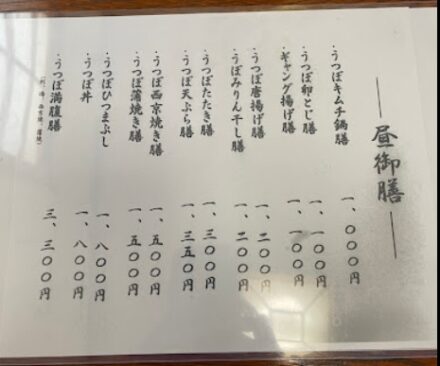 昼御膳
・うつぼキムチ鍋膳 一、〇〇〇円
・うつぼ卵とじ膳 一、一〇〇円
・ギャング揚げ膳 一、一〇〇円
・うつぼ唐揚げ膳 一、二〇〇円
・うぼみりん干し膳 一、二〇〇円
・うつぼたたき膳 一、三〇〇円
・うつぼ天ぷら膳 一、三五〇円
・うつぼ西京焼き膳 一、五〇〇円
・うつぼ蒲焼き膳 一、五〇〇円
・うつぼひつまぶし 一、八〇〇円
・うつぼ丼 一、八〇〇円
・うつぼ満腹膳 三、三〇〇円